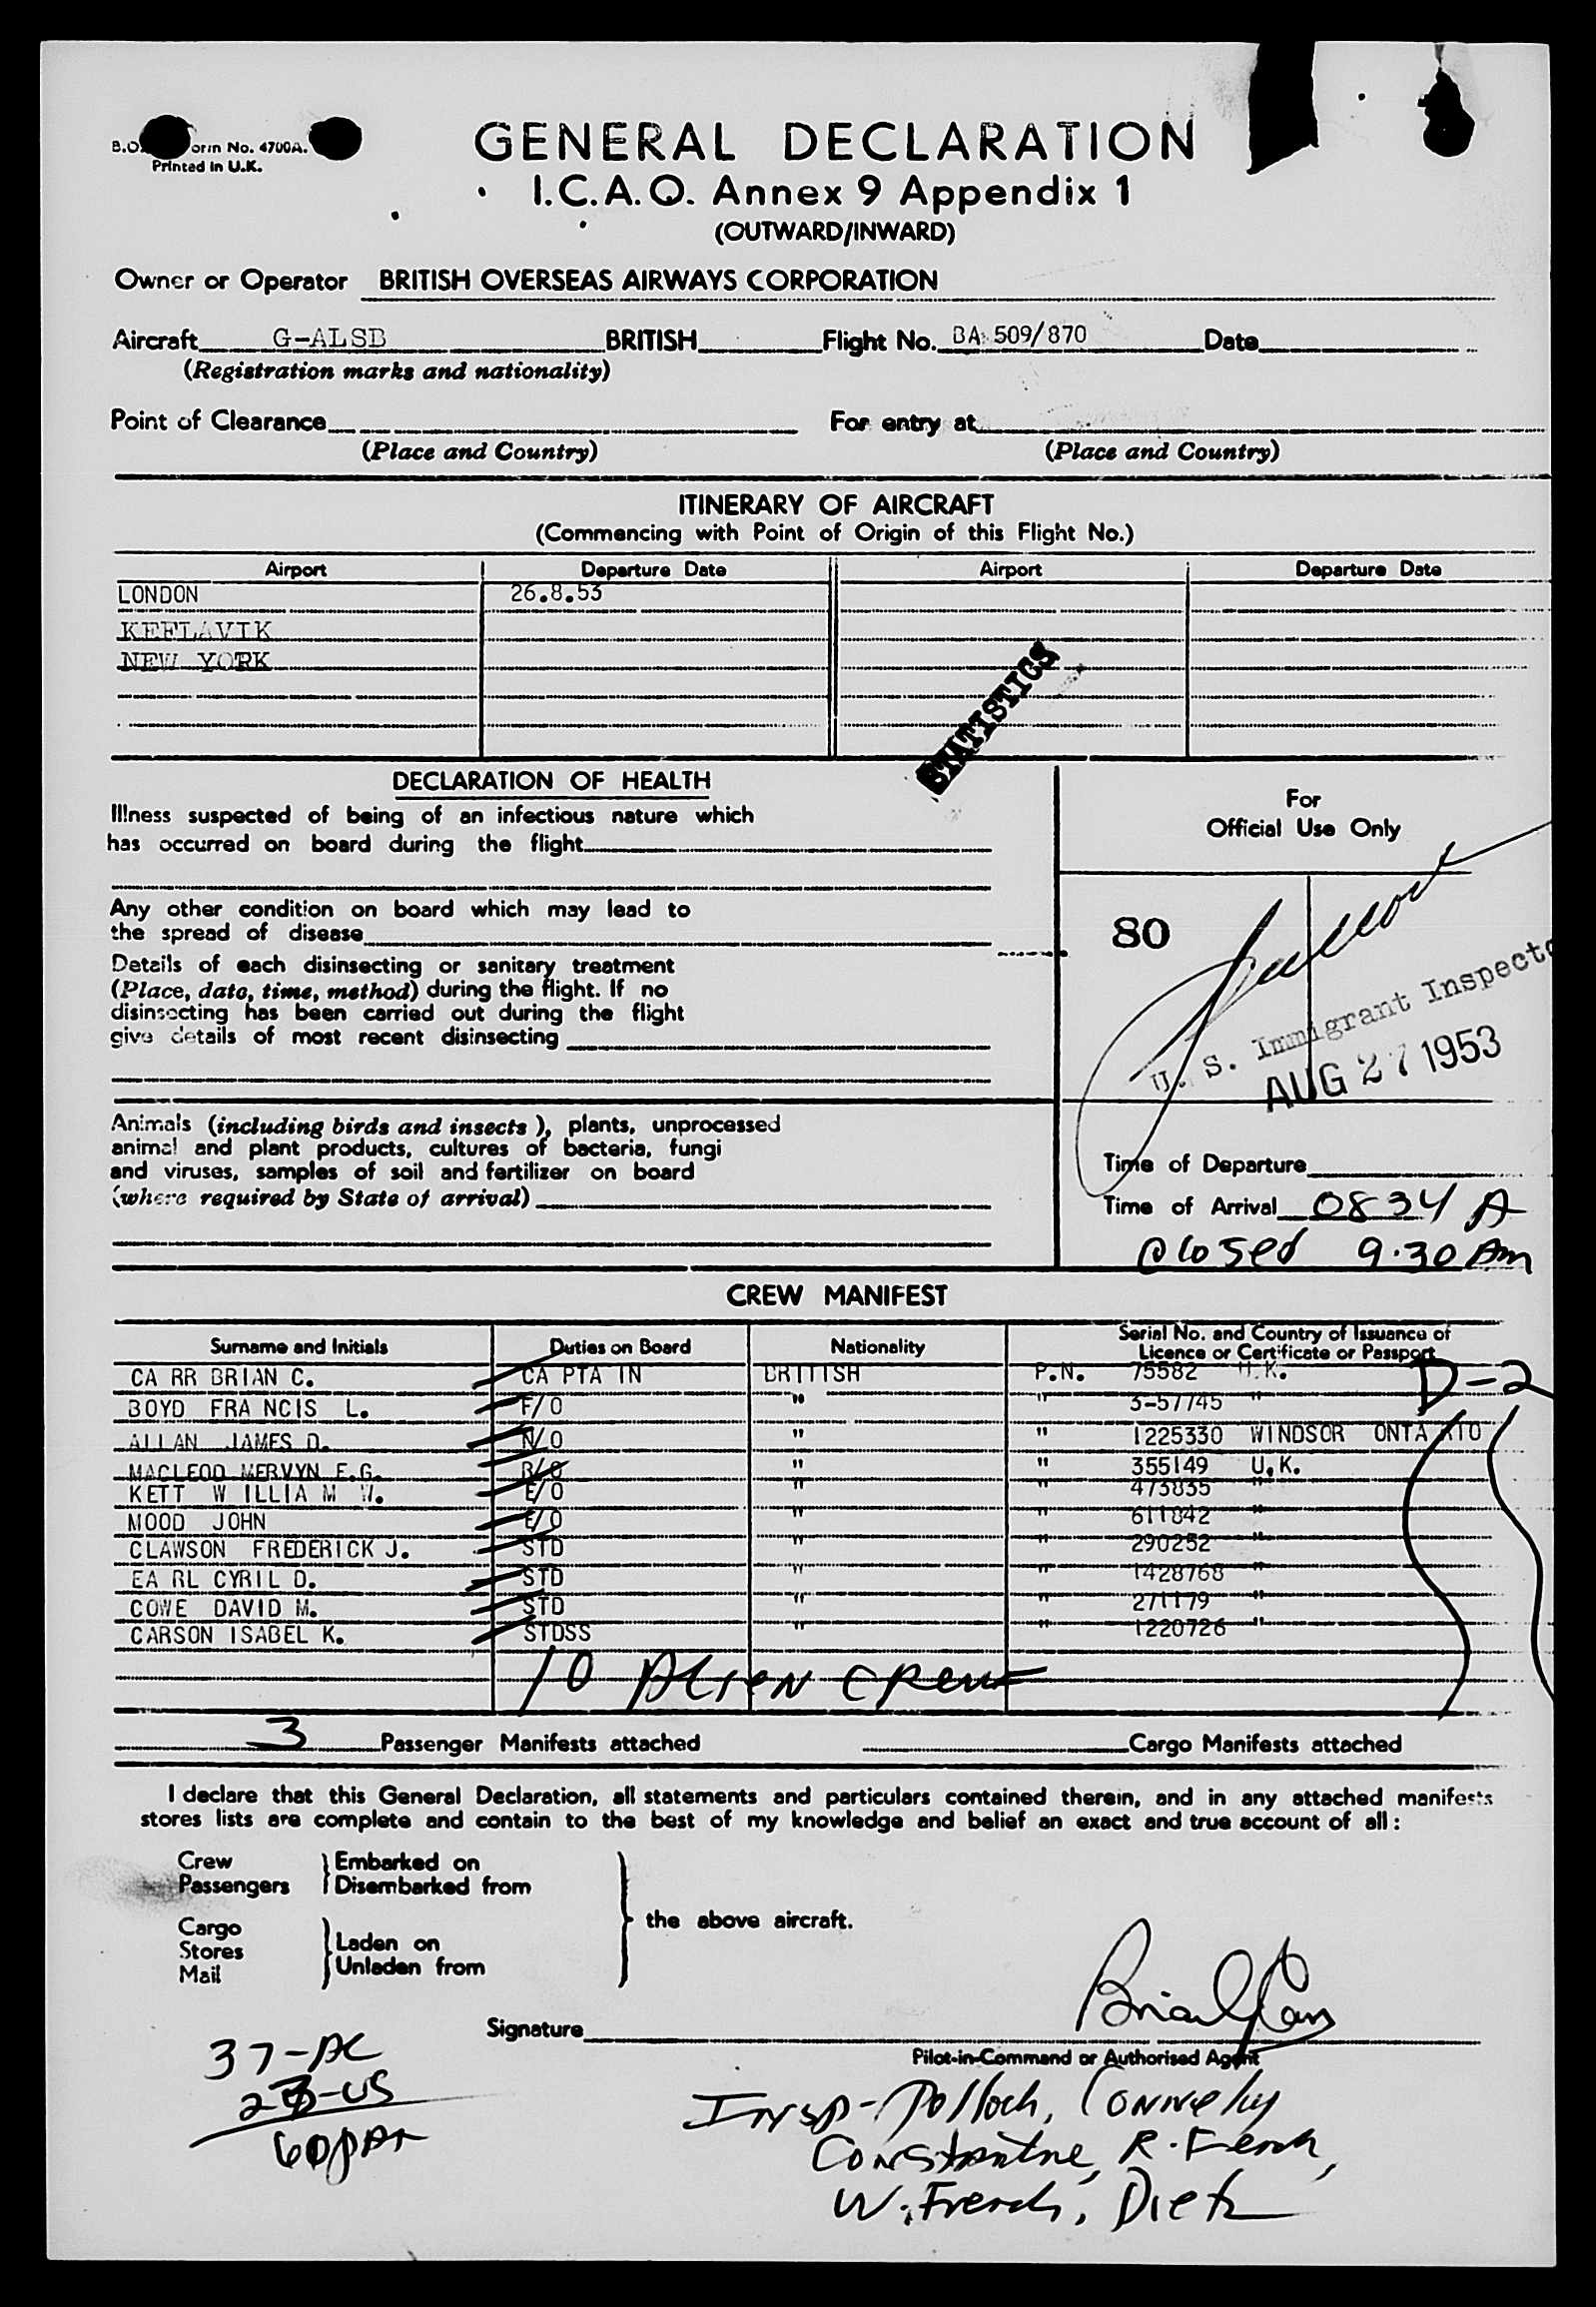 B.O. orm No. 4700A.
Printed in U.K.
GENERAL DECLARATION
I.C.A.O. Annex 9 Appendix 1
(OUTWARD/INWARD)
Owner or Operator BRITISH OVERSEAS AIRWAYS CORPORATION
Aircraft G-ALSB BRITISH Flight No. BA 509/870 Date
(Registration marks and nationality)
Point of Clearance For entry at
(Place and Country) (Place and Country)
ITINERARY OF AIRCRAFT
(Commencing with Point of Origin of this Flight No.)
Airport Departure Date Airport Departure Date
LONDON 26.8.53
KEFLAVIK
NEW YORK
STATISTICS
DECLARATION OF HEALTH
Illness suspected of being of an infectious nature which
has occurred on board during the flight
Any other condition on board which may lead to
the spread of disease
Details of each disinsecting or sanitary treatment
(Place, date, time, method) during the flight. If no
disinsecting has been carried out during the flight
give details of most recent disinsecting
Animals (including birds and insects), plants, unprocessed
animal and plant products, cultures of bacteria, fungi
and viruses, samples of soil and fertilizer on board
(where required by State of arrival)
For
Official Use Only
80
U. S. Immigrant Inspecto
AUG 27 1953
Time of Departure
Time of Arrival 0834 A
Closed 9.30 Am
CREW MANIFEST
Surname and Initials Duties on Board Nationality Serial No. and Country of Issuance of
Licence or Certificate or Passport
CA RR BRIAN C. CA PTA IN BRITISH P.N. 75582 U.K.
D-2
BOYD FRA NCIS L. F/O " " 3-57745 "
ALLAN JAMES D. N/O " " 1225330 WINDSOR ONTA RIO
MACLEOD MERVYN F.G. R/O " " 355149 U.K.
KETT W ILLIA M W. E/O " " 473835 "
MOOD JOHN E/O " " 611842 "
CLAWSON FREDERICK J. STD " " 290252 "
EA RL CYRIL D. STD " " 1428768 "
COWE DAVID M. STD " " 271179 "
CARSON ISABEL K. STDSS " " 1220726 "
10 ALIEN CREW
3 Passenger Manifests attached Cargo Manifests attached
I declare that this General Declaration, all statements and particulars contained therein, and in any attached manifests
stores lists are complete and contain to the best of my knowledge and belief an exact and true account of all :
Crew Embarked on
Passengers Disembarked from
the above aircraft.
Cargo
Stores Laden on
Mail Unladen from
Signature Brian C Carr
Pilot-in-Command or Authorised Agent
37-AL
23-US
60
Insp- Pollock, Connelly
Constantine, R. French,
W. French, Dietz